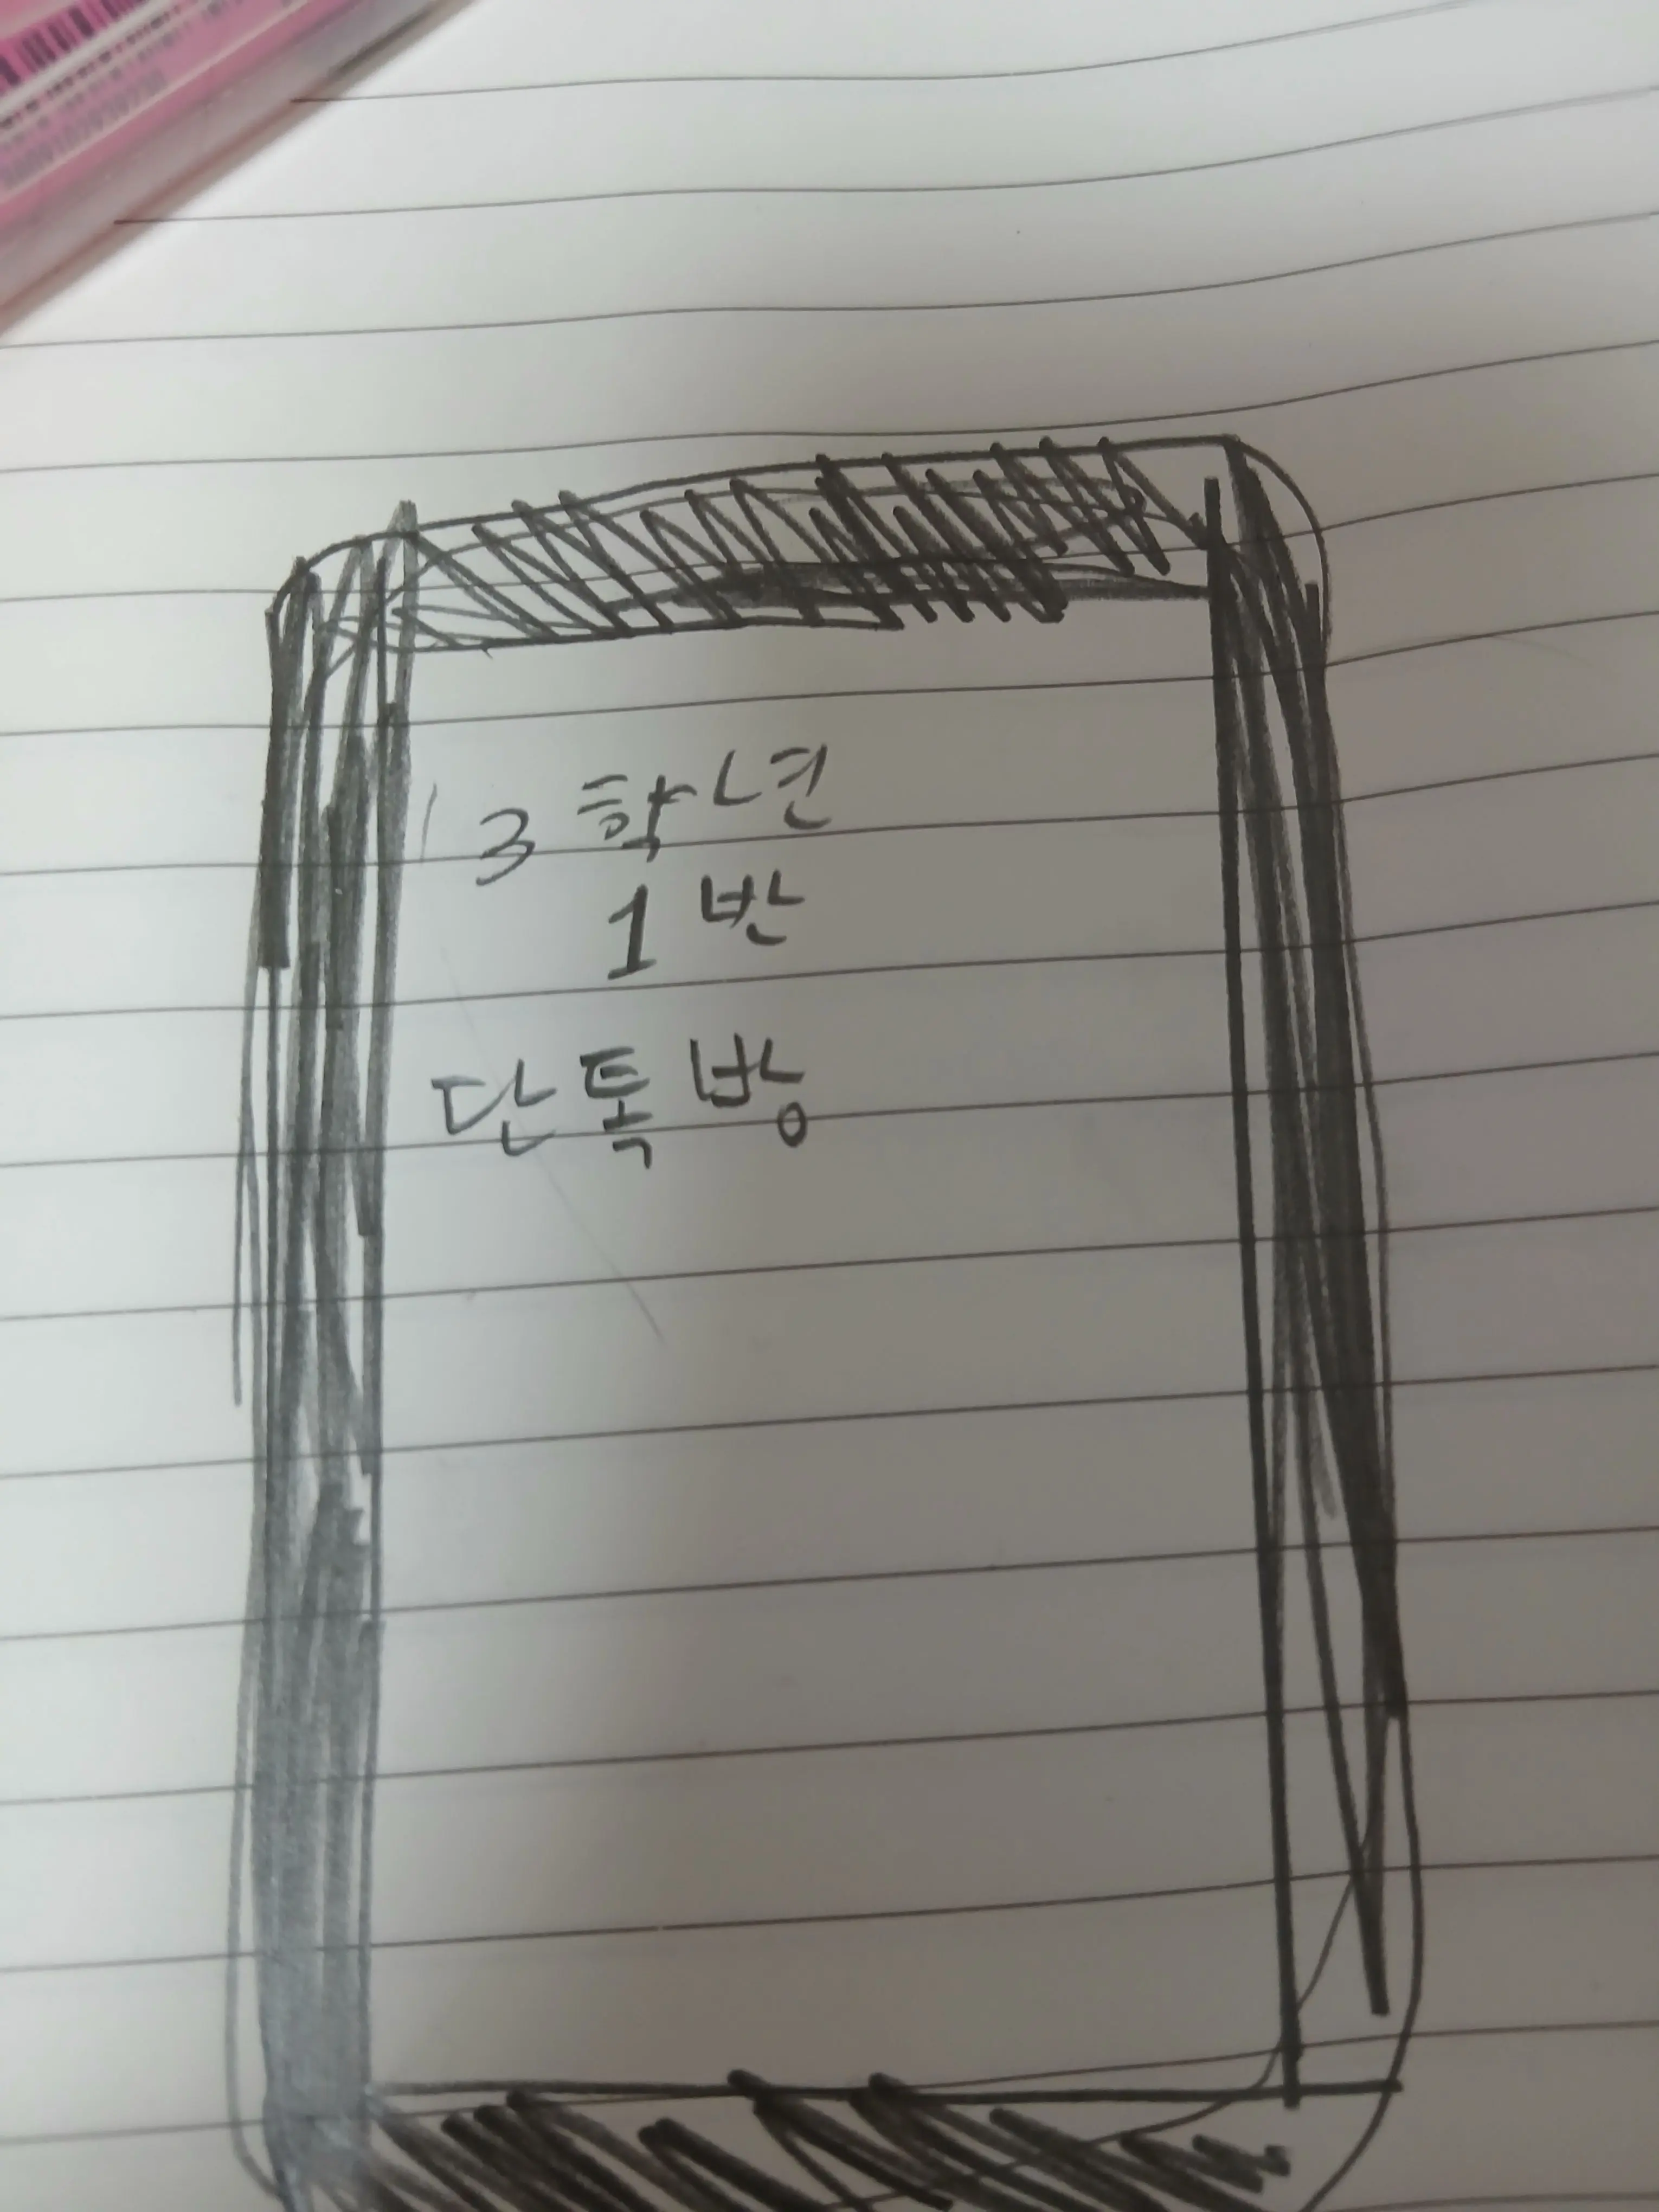 3학년
1반
단톡방